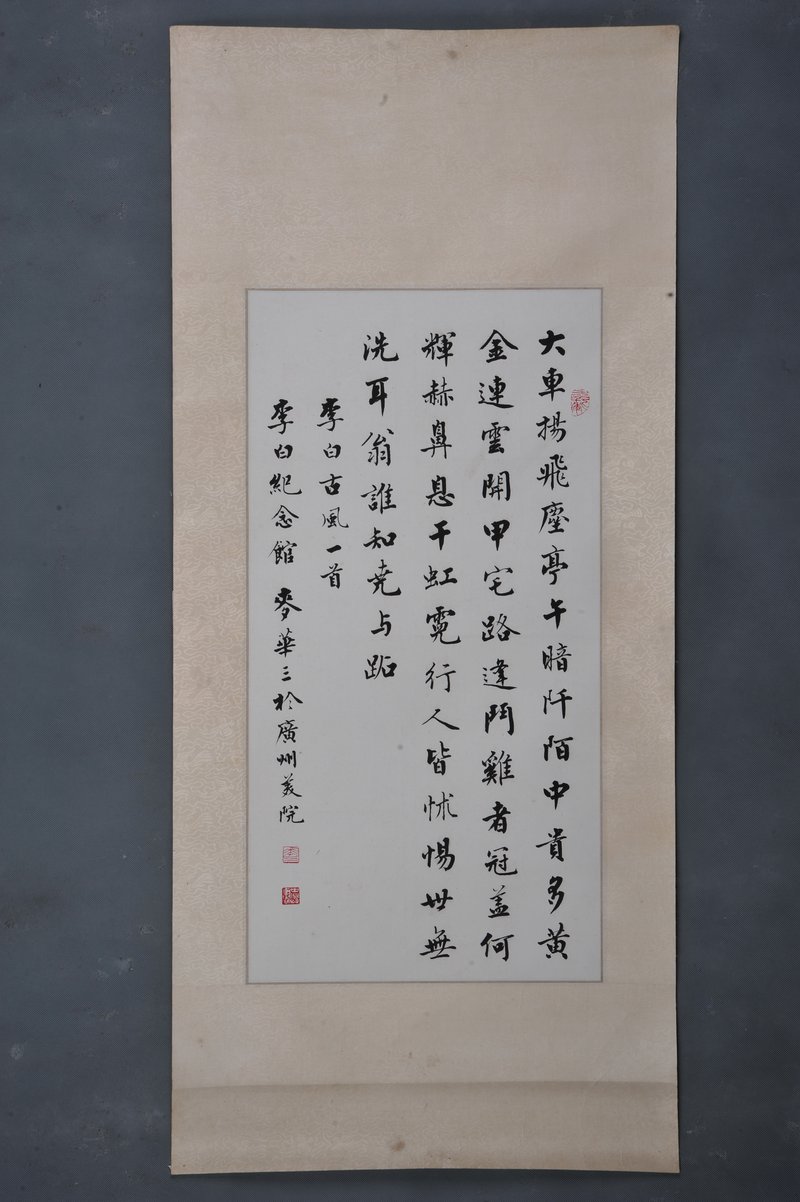 大車揚飛塵亭午暗阡陌中貴多黄
金連雲開甲宅路逢鬥雞者冠盖何
輝赫鼻息干虹霓行人皆怵惕世無
洗耳翁誰知堯与跖
李白古風一首
李白紀念館 麥華三於廣州美院